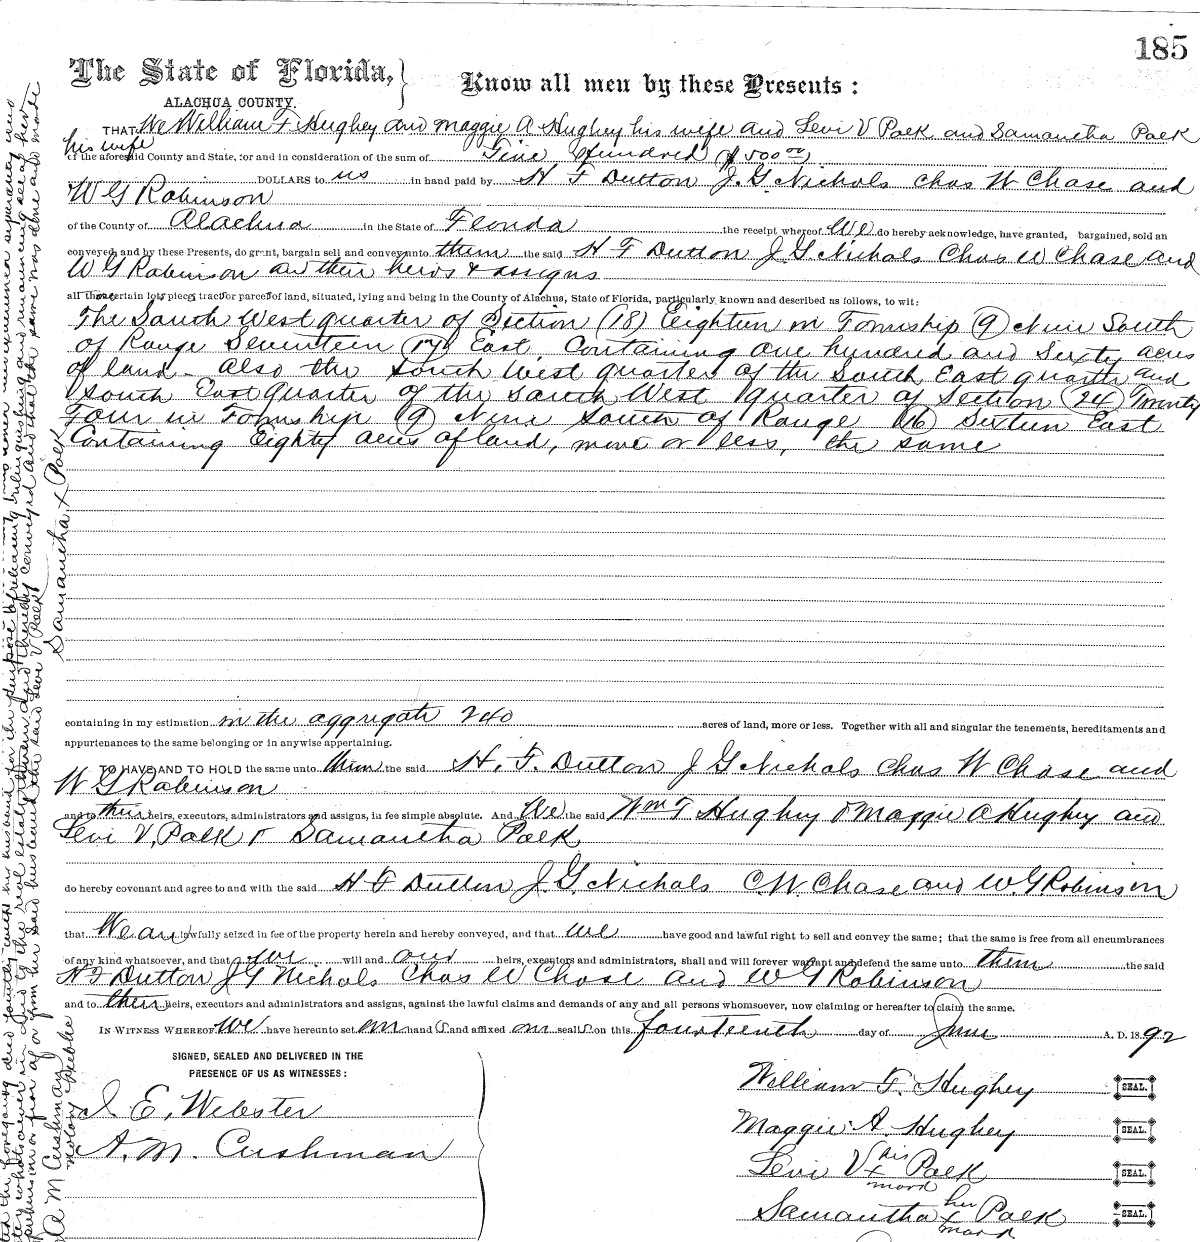 185
The State of Florida,
Know all men by these Presents :
ALACHUA COUNTY.
THAT We William F Hughey and Maggie A Hughey his wife and Levi V Polk and Samantha Polk
his wife
of the aforesaid County and State, for and in consideration of the sum of Five Hundred $500 00
DOLLARS to us in hand paid by H F Dutton J. G. Nichols Chas W Chase and
W G Robinson
of the County of Alachua in the State of Florida the receipt whereof We do hereby acknowledge, have granted, bargained, sold an
conveyed, and by these Presents, do grant, bargain sell and convey unto them the said H F Dutton J G Nichols Chas W Chase and
W G Robinson and their heirs & assigns
all those certain lots piece, tract or parcel of land, situated, lying and being in the County of Alachua, State of Florida, particularly known and described as follows, to wit:
The South West quarter of Section (18) Eighteen in Township (9) Nine South
of Range Seventeen (17) East. Containing one hundred and Sixty acres
of land - also the South West quarter of the South East quarter and
South East Quarter of the South West quarter of Section (24) Twenty
Four in Township (9) Nine South of Range (16) Sixteen East
Containing Eighty acres of land, more or less, the same
containing in my estimation in the aggregate 240 acres of land, more or less. Together with all and singular the tenements, hereditaments and
appurtenances to the same belonging or in anywise appertaining.
TO HAVE AND TO HOLD the same unto them the said H. F. Dutton J G Nichols Chas W Chase and
W G Robinson
and to their heirs, executors, administrators and assigns, in fee simple absolute. And We the said Wm F Hughey & Maggie A Hughey and
Levi V. Polk & Samantha Polk
do hereby covenant and agree to and with the said H F Dutton J. G. Nichols C. W. Chase and W. G Robinson
that We are lawfully seized in fee of the property herein and hereby conveyed, and that we have good and lawful right to sell and convey the same; that the same is free from all encumbrances
of any kind whatsoever, and that we will and our heirs, executors and administrators, shall and will forever warrant and defend the same unto them the said
H F Dutton J G Nichols Chas W Chase and W G Robinson
and to their heirs, executors and administrators and assigns, against the lawful claims and demands of any and all persons whomsoever, now claiming or hereafter to claim the same.
IN WITNESS WHEREOF, We have hereunto set our hand s and affixed our seal s on this fourteenth day of June A. D. 1892
SIGNED, SEALED AND DELIVERED IN THE
PRESENCE OF US AS WITNESSES :
I E. Webster
A. M. Cushman
William F. Hughey SEAL.
Maggie A. Hughey SEAL.
Levi V his x mark Polk SEAL.
Samantha her x mark Polk SEAL.
Samantha x Polk
A M Cushman